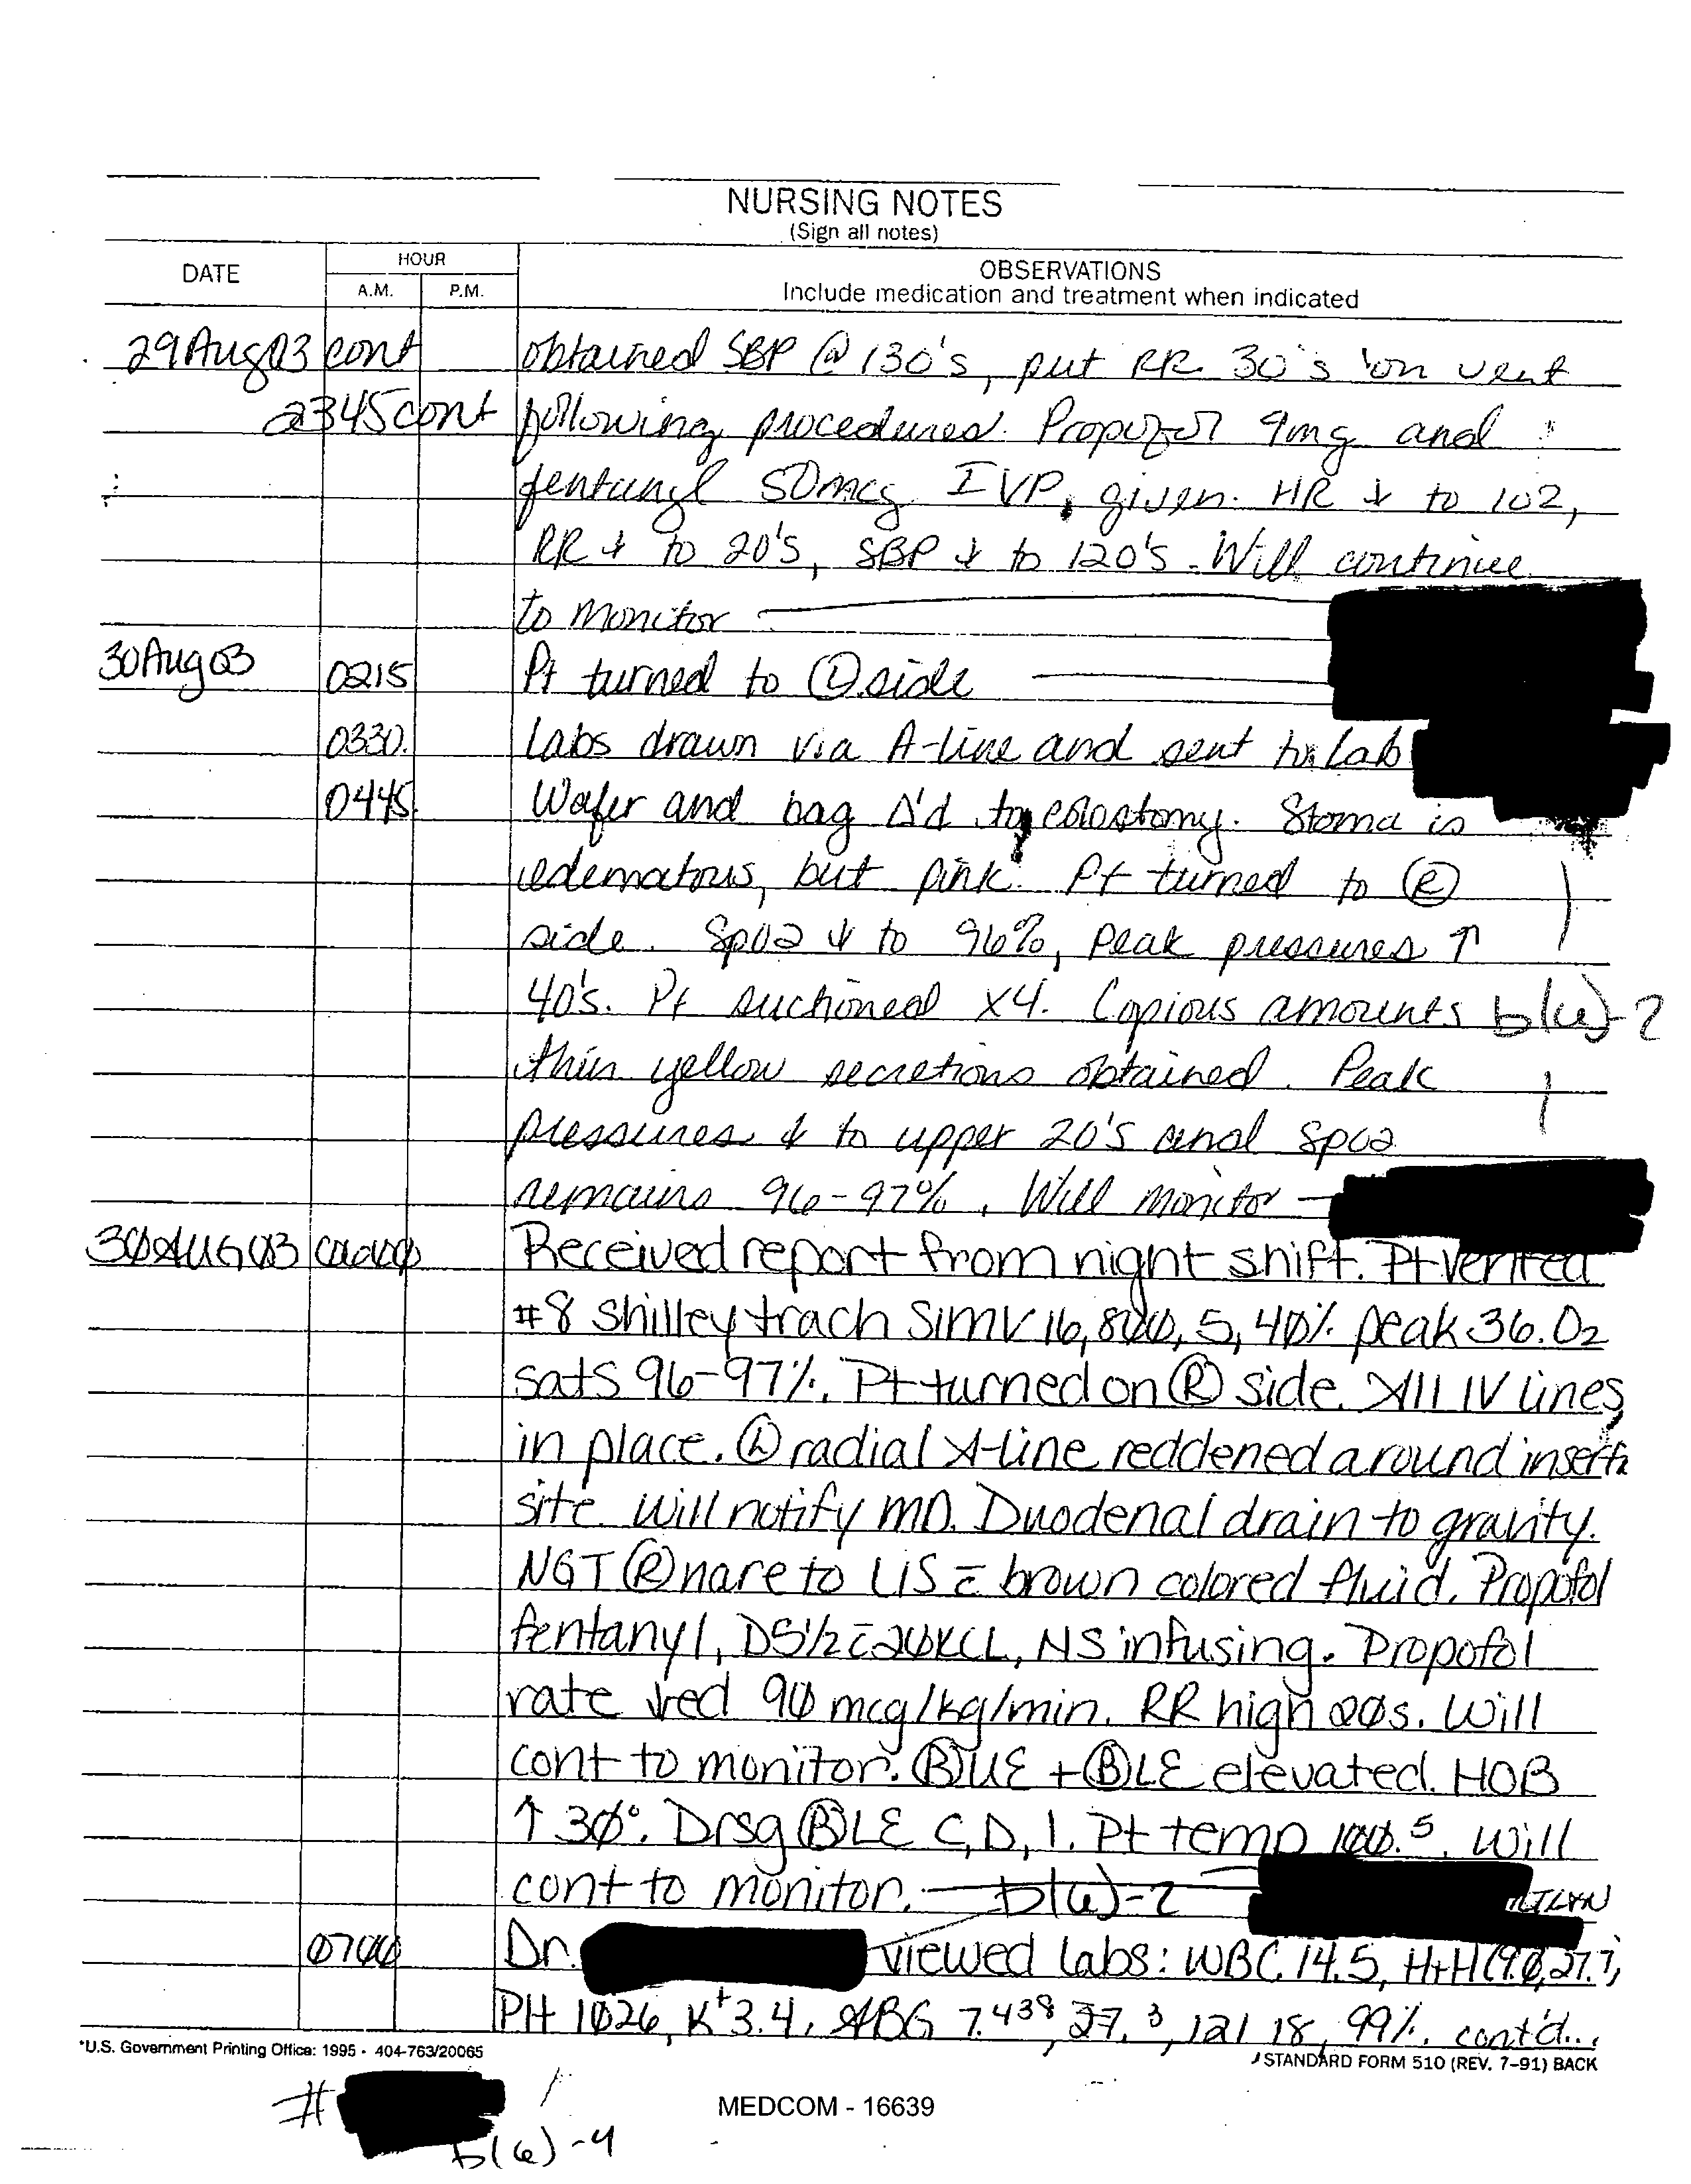 NURSING NOTES
(Sign all notes)
DATE
HOUR
A.M.
P.M.
OBSERVATIONS
Include medication and treatment when indicated
29Aug03 cont obtained SBP @ 130's, put RR 30's on vent
2345 cont following procedures. Propofol 9mg and
fentanyl 50mcg IVP, given. HR ↓ to 102,
RR ↓ to 20's, SBP ↓ to 120's. Will continue
to monitor
30Aug03 0215 Pt turned to Ⓛ side
0330. Labs drawn via A-line and sent to Lab
0445. Wafer and bag Δ'd to colostomy. Stoma is
edematous, but pink. Pt turned to Ⓡ
side. SpO2 ↓ to 96%, Peak pressures ↑
40's. Pt suctioned x4. Copious amounts b(6)-2
thin yellow secretions obtained. Peak
pressures ↓ to upper 20's and SpO2
remains 96-97%. Will monitor
30AUG03 0600 Received report from night shift. Pt vented
#8 shilley trach SIMV 16, 800, 5, 40% peak 36. O2
sats 96-97%. Pt turned on Ⓡ side. All IV lines
in place. Ⓛ radial A-line reddened around
site. Will notify MD. Duodenal drain to gravity.
NGT Ⓡ nare to LIS c̄ brown colored fluid. Propofol
fentanyl, D5½ c̄ 20KCL, NS infusing. Propofol
rate ↓red 90 mcg/kg/min. RR high 20s. Will
cont to monitor. ⒷUE + ⒷLE elevated. HOB
↑ 30°. Drsg ⒷLE C, D, I. Pt temp 100.5. Will
cont to monitor. b(6)-2
0700 Dr. viewed labs: WBC 14.5, H+H (9.0, 27.7,
Plt 1026, K+ 3.4. ABG 7.438, 37.3, 121, 18, 99%. cont'd...
*U.S. Government Printing Office: 1995 - 404-763/20065
STANDARD FORM 510 (REV. 7-91) BACK
#
MEDCOM - 16639
b(6)-4